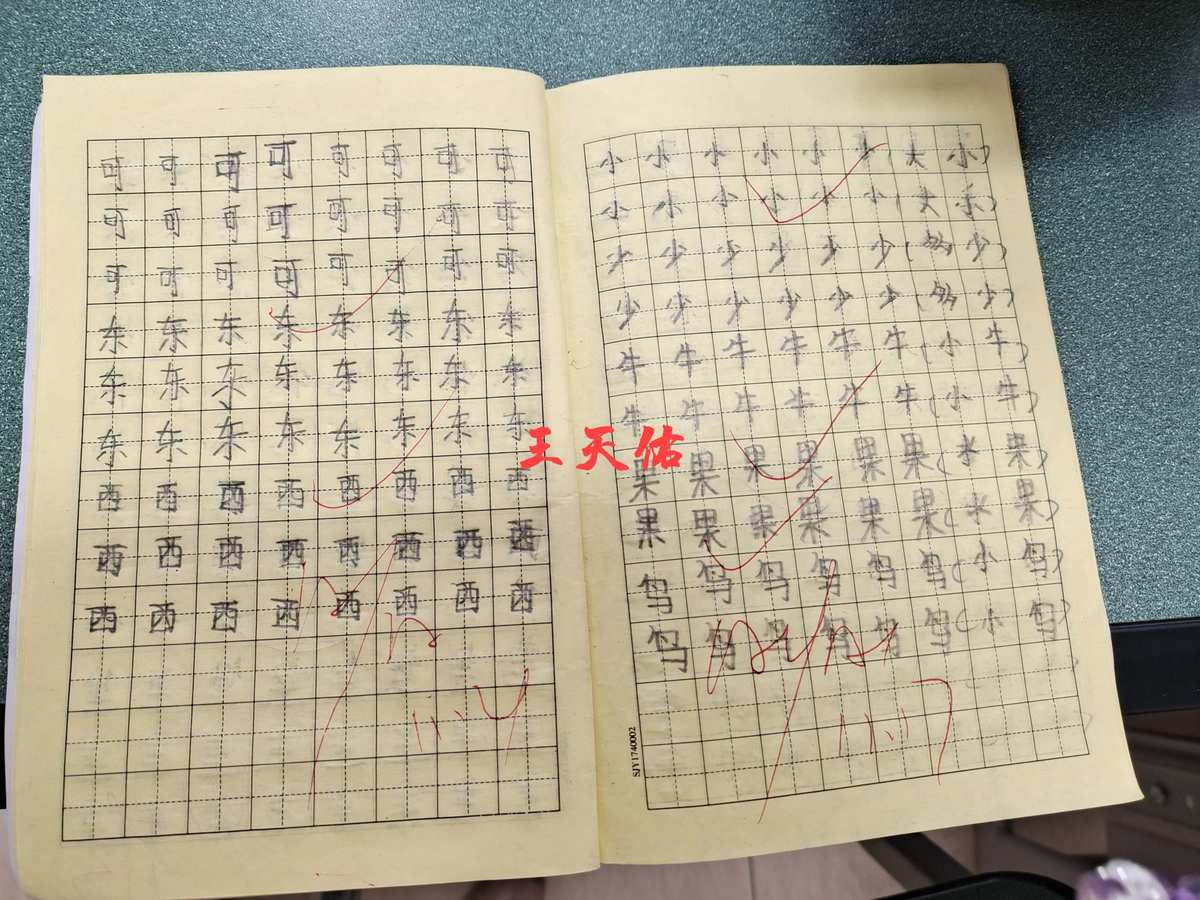 可可可可可可可可
可可可可可可可可
可可可可可可可可
东东东东东东东东
东东东东东东东东
东东东东东东东东
西西西西西西西西
西西西西西西西西
西西西西西西西西
11.6
小小小小小小(大小)
小小小小小小(大小)
少少少少少少(多少)
少少少少少少(多少)
牛牛牛牛牛牛(小牛)
牛牛牛牛牛牛(小牛)
果果果果果果(水果)
果果果果果果(水果)
鸟鸟鸟鸟鸟鸟(小鸟)
鸟鸟鸟鸟鸟鸟(小鸟)
11.7
SJY1740002
王天佑